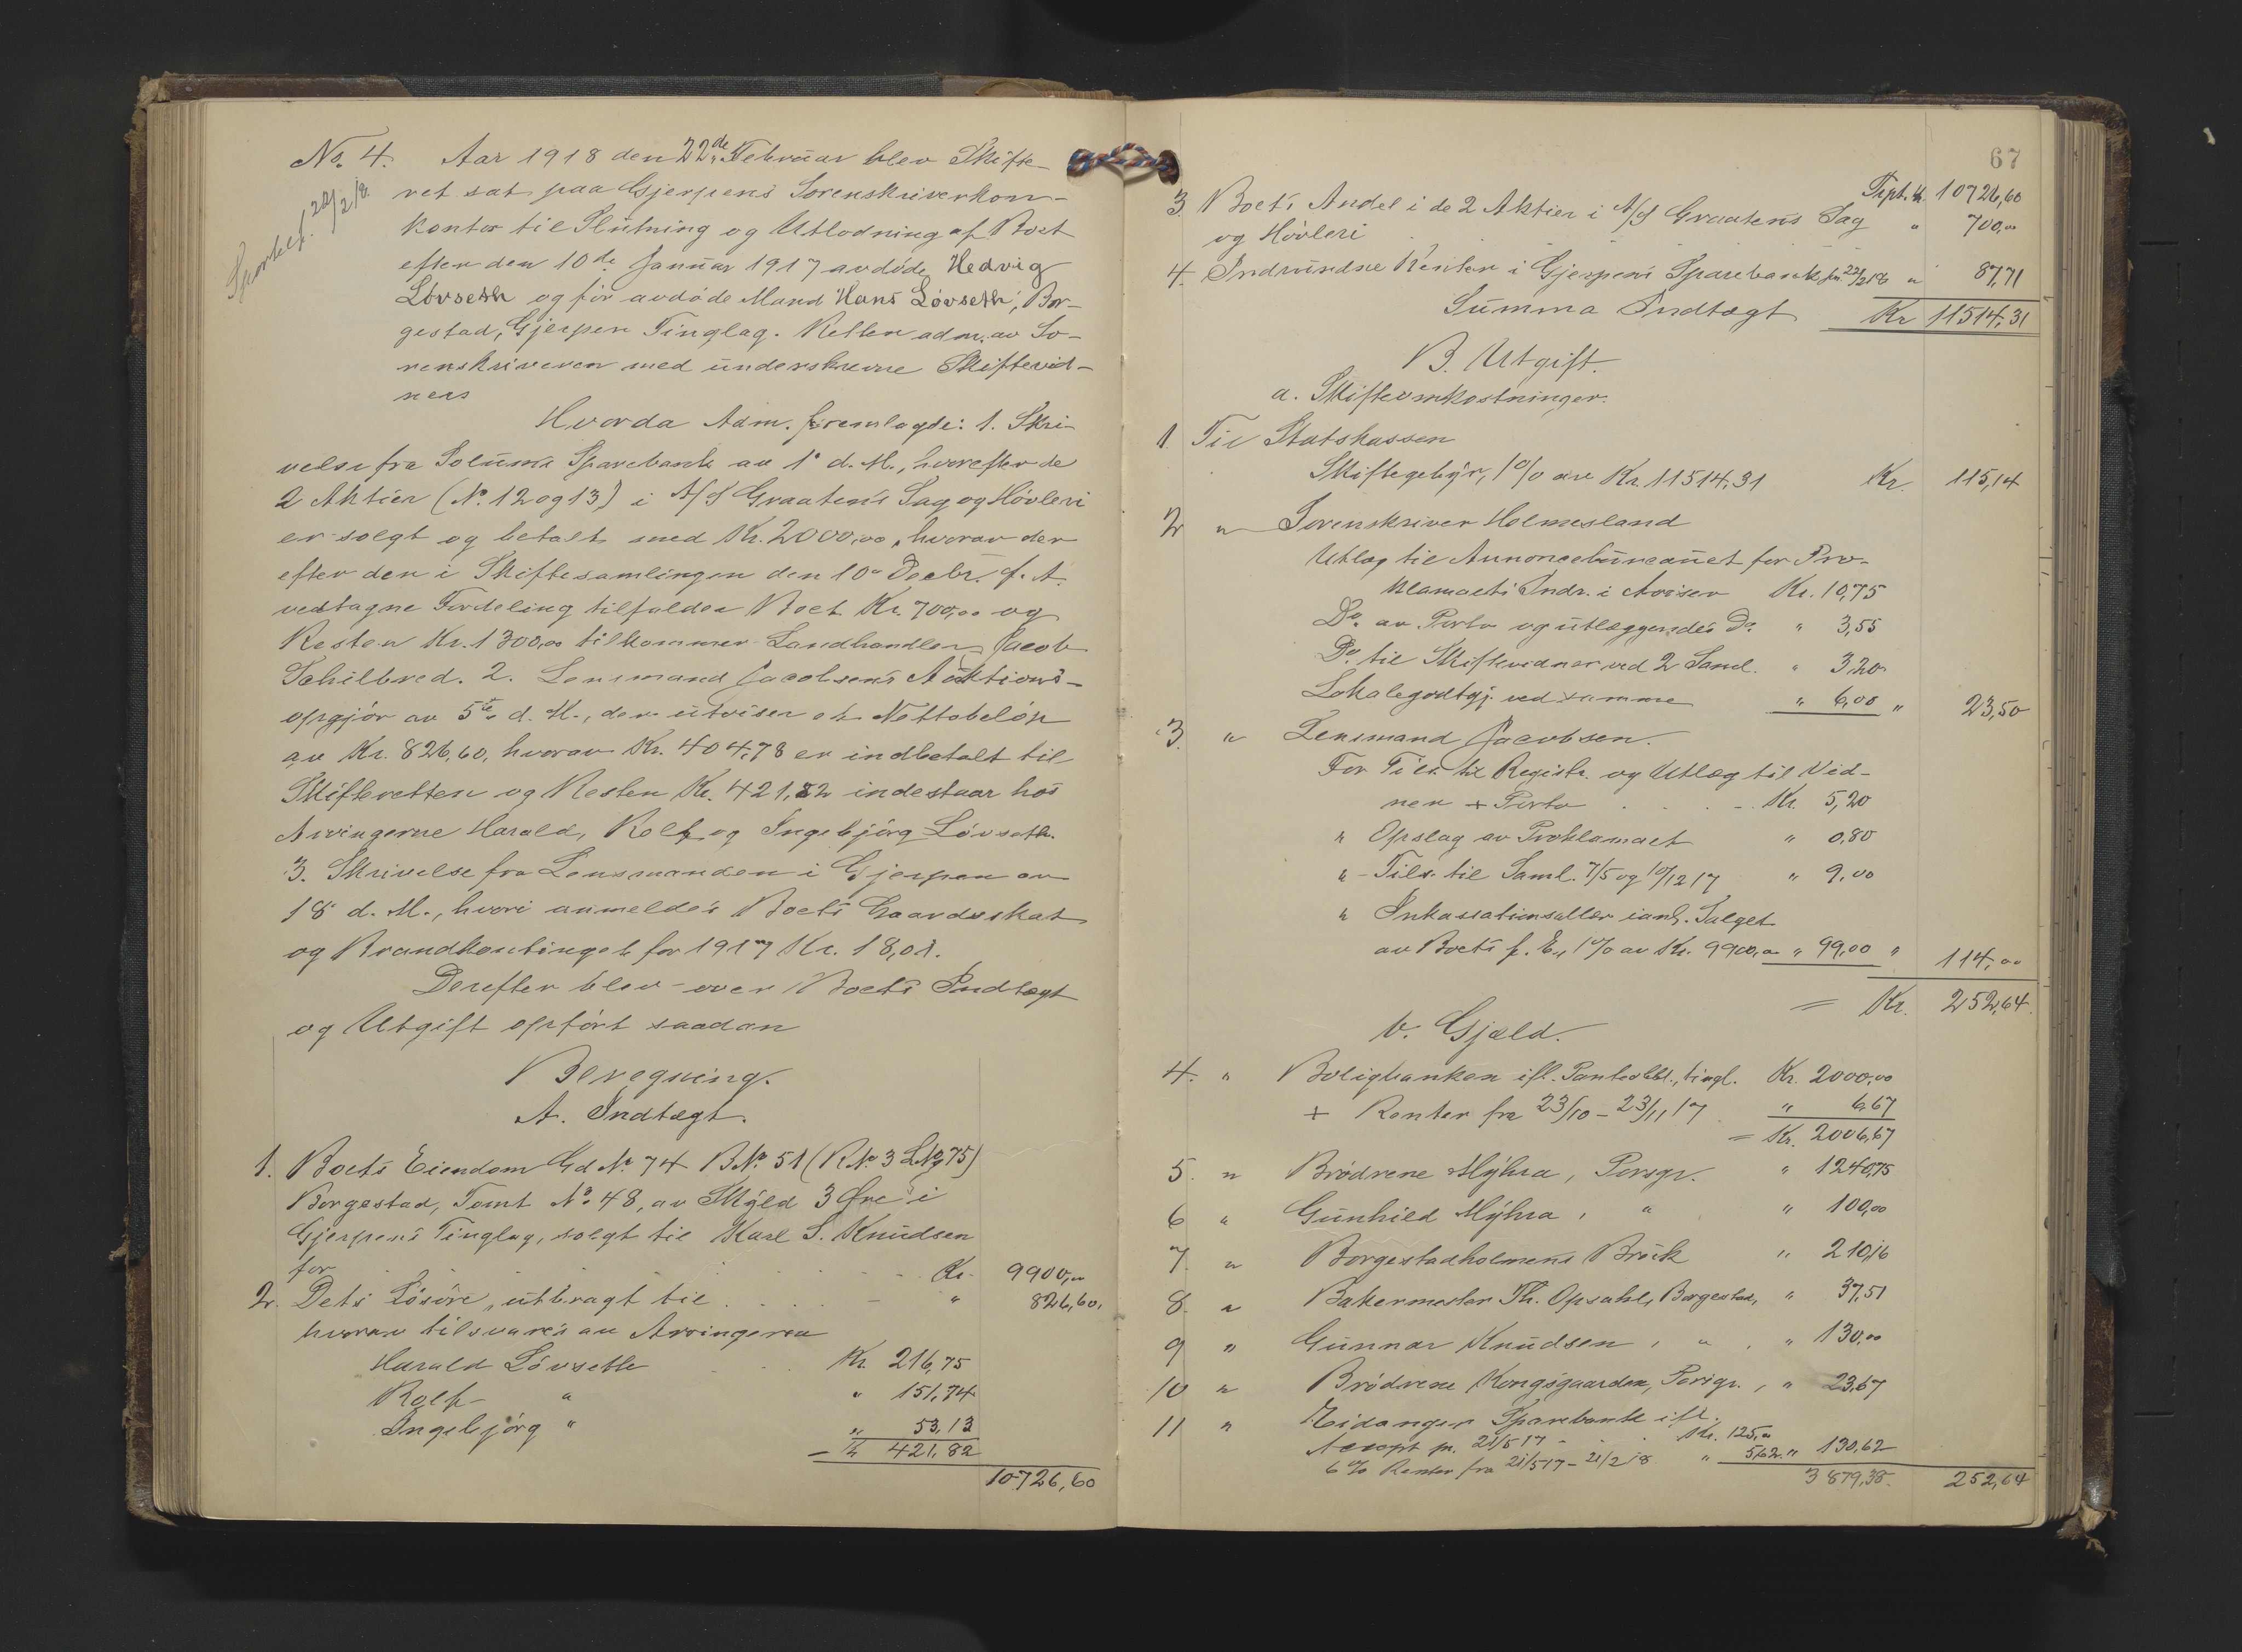 No. 4. Aar 1918 den 22de Februar blev Skifte-
22/2 18.
ret sat paa Gjerpens Sorenskriverkon-
kontor til Slutning og Utlodning af Boet
efter den 10de Januar 1917 avdøde Hedvig
Løvseth og før avdøde Mand Hans Løvseth, Bor-
gestad, Gjerpen Tinglag. Retten adm. av So-
renskriveren med underskrevne Skiftevid-
ner
Hvorda Adm. fremlagde: 1. Skri-
velse fra Solums Sparebank av 1' d. M., hvorefter de
2 Aktier (No. 12 og 13) i A/S Graatens Sag og Høvleri
er solgt og betalt med Kr. 2000,00, hvorav der
efter den i Skiftesamlingen den 10' Decbr. f. A.
vedtagne Fordeling tilfalder Boet Kr. 700,00 og
Resten Kr. 1300,00 tilkommer Landhandler Jacob
Schilbred. 2. Lensmand Jacobsens Auktions-
opgjør av 5te d. M., der utviser et Nettobeløp
av Kr. 826,60, hvorav Kr. 404,78 er indbetalt til
Skifteretten og Resten Kr. 421,82 indestaar hos
Arvingerne Harald, Rolf og Ingebjørg Løvseth.
3. Skrivelse fra Lensmanden i Gjerpen av
18' d. M., hvori anmeldes Boets Gaardsskat
og Brandkontingent for 1917 Kr. 18,01.
Derefter blev over Boets Indtægt
og Utgift opført saadan
Beregning.
A. Indtægt.
1. Boets Eiendom Gd No. 74 B.No. 51 (R.No. 3 L.No. 75)
Borgestad, Tomt No. 48, av Skyld 3 Øre i
Gjerpens Tinglag, solgt til Karl S. Knudsen
for . . . . . Kr. 9900,00
2. Dets Løsøre, utbragt til . . . . " 826,60,
hvorav tilsvares av Arvingerne
Harald Løvseth . . . Kr. 216,75
Rolf " " 151,94
Ingebjørg " " 53,13
= Kr. 421,82
10726,60
67
Trpt. Kr. 10726,60
3. Boets Andel i de 2 Aktier i A/S Graatens Sag
og Høvleri " 700,00
4. Indvundne Renter i Gjerpens Sparebank pr. 22/2 18 " 87,71
Summa Indtægt Kr 11514,31
B. Utgift.
a. Skifteomkostninger.
1. Til Statskassen
Skiftegebyr, 1% av Kr. 11514,31 Kr. 115,14
2 " Sorenskriver Holmesland
Utlæg til Annoncebureauet for Pro-
klamaets Indr. i Aviser Kr. 10,75
Do. av Porto og utlæggendes Do. " 3,55
Do. til Skiftevidner ved 2 Saml. " 3,20
Lokalegodtgj. ved samme " 6,00 " 23,50
3. " Lensmand Jacobsen.
For Tils. til Registr. og Utlæg til Vid-
ner + Porto . . . Kr. 5,20
" Opslag av Proklamaet " 0,80
" Tils. til Saml. 7/5 og 10/12 17 " 9,00
" Inkassationssallær ianl. Salget
av Boets f. E., 1% av Kr. 9900,00 " 99,00 " 114,00
= Kr. 252,64.
b. Gjæld.
4. " Boligbanken ifl. Panteobl., tingl. Kr. 2000,00
+ Renter fra 23/10 - 23/11 17 " 6,67
= Kr. 2006,67
5. " Brødrene Myhra, Porsgr. " 1240,75
6 " Gunhild Myhra, " " 100,00
7. " Borgestadholmens Bruk " 210,16
8. " Bakermester Th. Opsahl, Borgestad, " 37,51
9 " Gunnar Knudsen, " . " 130,00
10 " Brødrene Kongsgaarden, Porsgr., " 23,67
11 " Eidanger Sparebank ifl.
Accept pr. 21/5 17 - . . Kr. 125,00
6% Renter fra 21/5 17 - 21/2 18 " 5,62 " 130,62
3879,38. 252,64